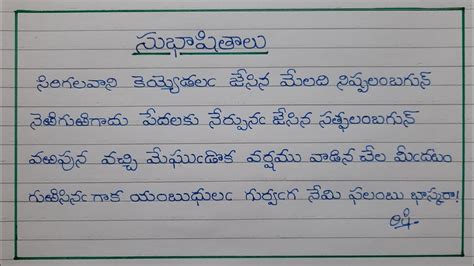 సుభాషితాలు
సిరిగలవాని కెయ్యెడలఁ జేసిన మేలది నిష్ఫలంబగున్
నెఱిగుఱిగాదు పేదలకు నేర్పునఁ జేసిన సత్ఫలంబగున్
వఱపున వచ్చి మేఘుఁడొక వర్షము వాడిన చేల మీఁదటం
గుఱిసినఁ గాక యంబుధులఁ గుర్వఁగ నేమి ఫలంబు భాస్కరా!